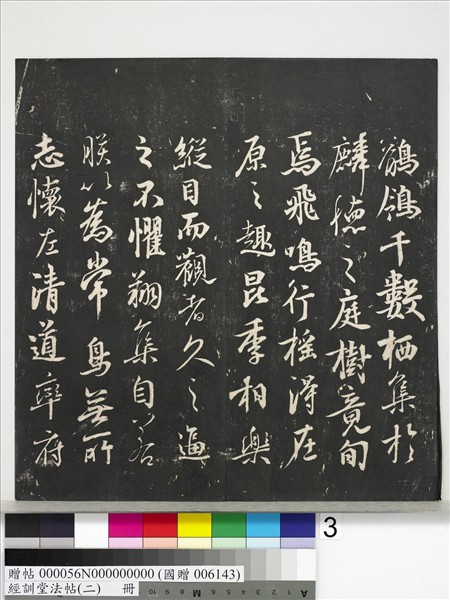 鶺鴒千數栖集於
麟德之庭樹竟旬
焉飛鳴行搖得在
原之趣昆季相樂
縱目而觀者久之逼
之不懼翔集自若
朕以爲常鳥無所
志懷左清道率府
3
贈帖 000056N000000000 (國贈 006143)
經訓堂法帖(二) 冊